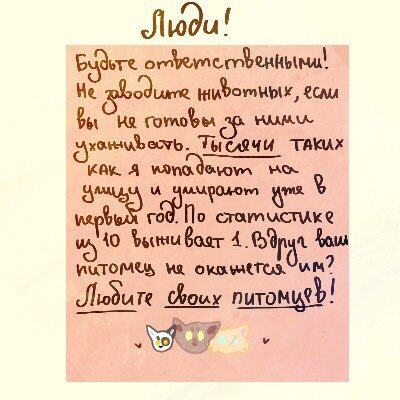 Люди!
Будьте ответственными!
Не заводите животных, если
вы не готовы за ними
ухаживать. Тысячи таких
как я попадают на
улицу и умирают уже в
первый год. По статистике
из 10 выживает 1. Вдруг ваш
питомец не окажется им?
Любите своих питомцев!